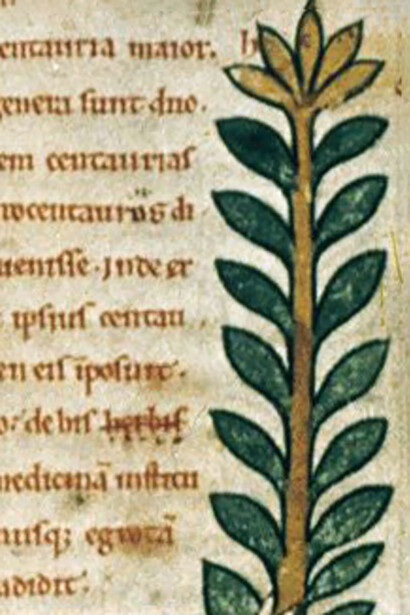 entauria maior. h
genera sunt duo.
em centaurias
nocentauros di
uenisse. Inde et
ipsius centau
en eis īposuit.
o: de his herbis
medicinā institu
niusq; egrotā
adidit.